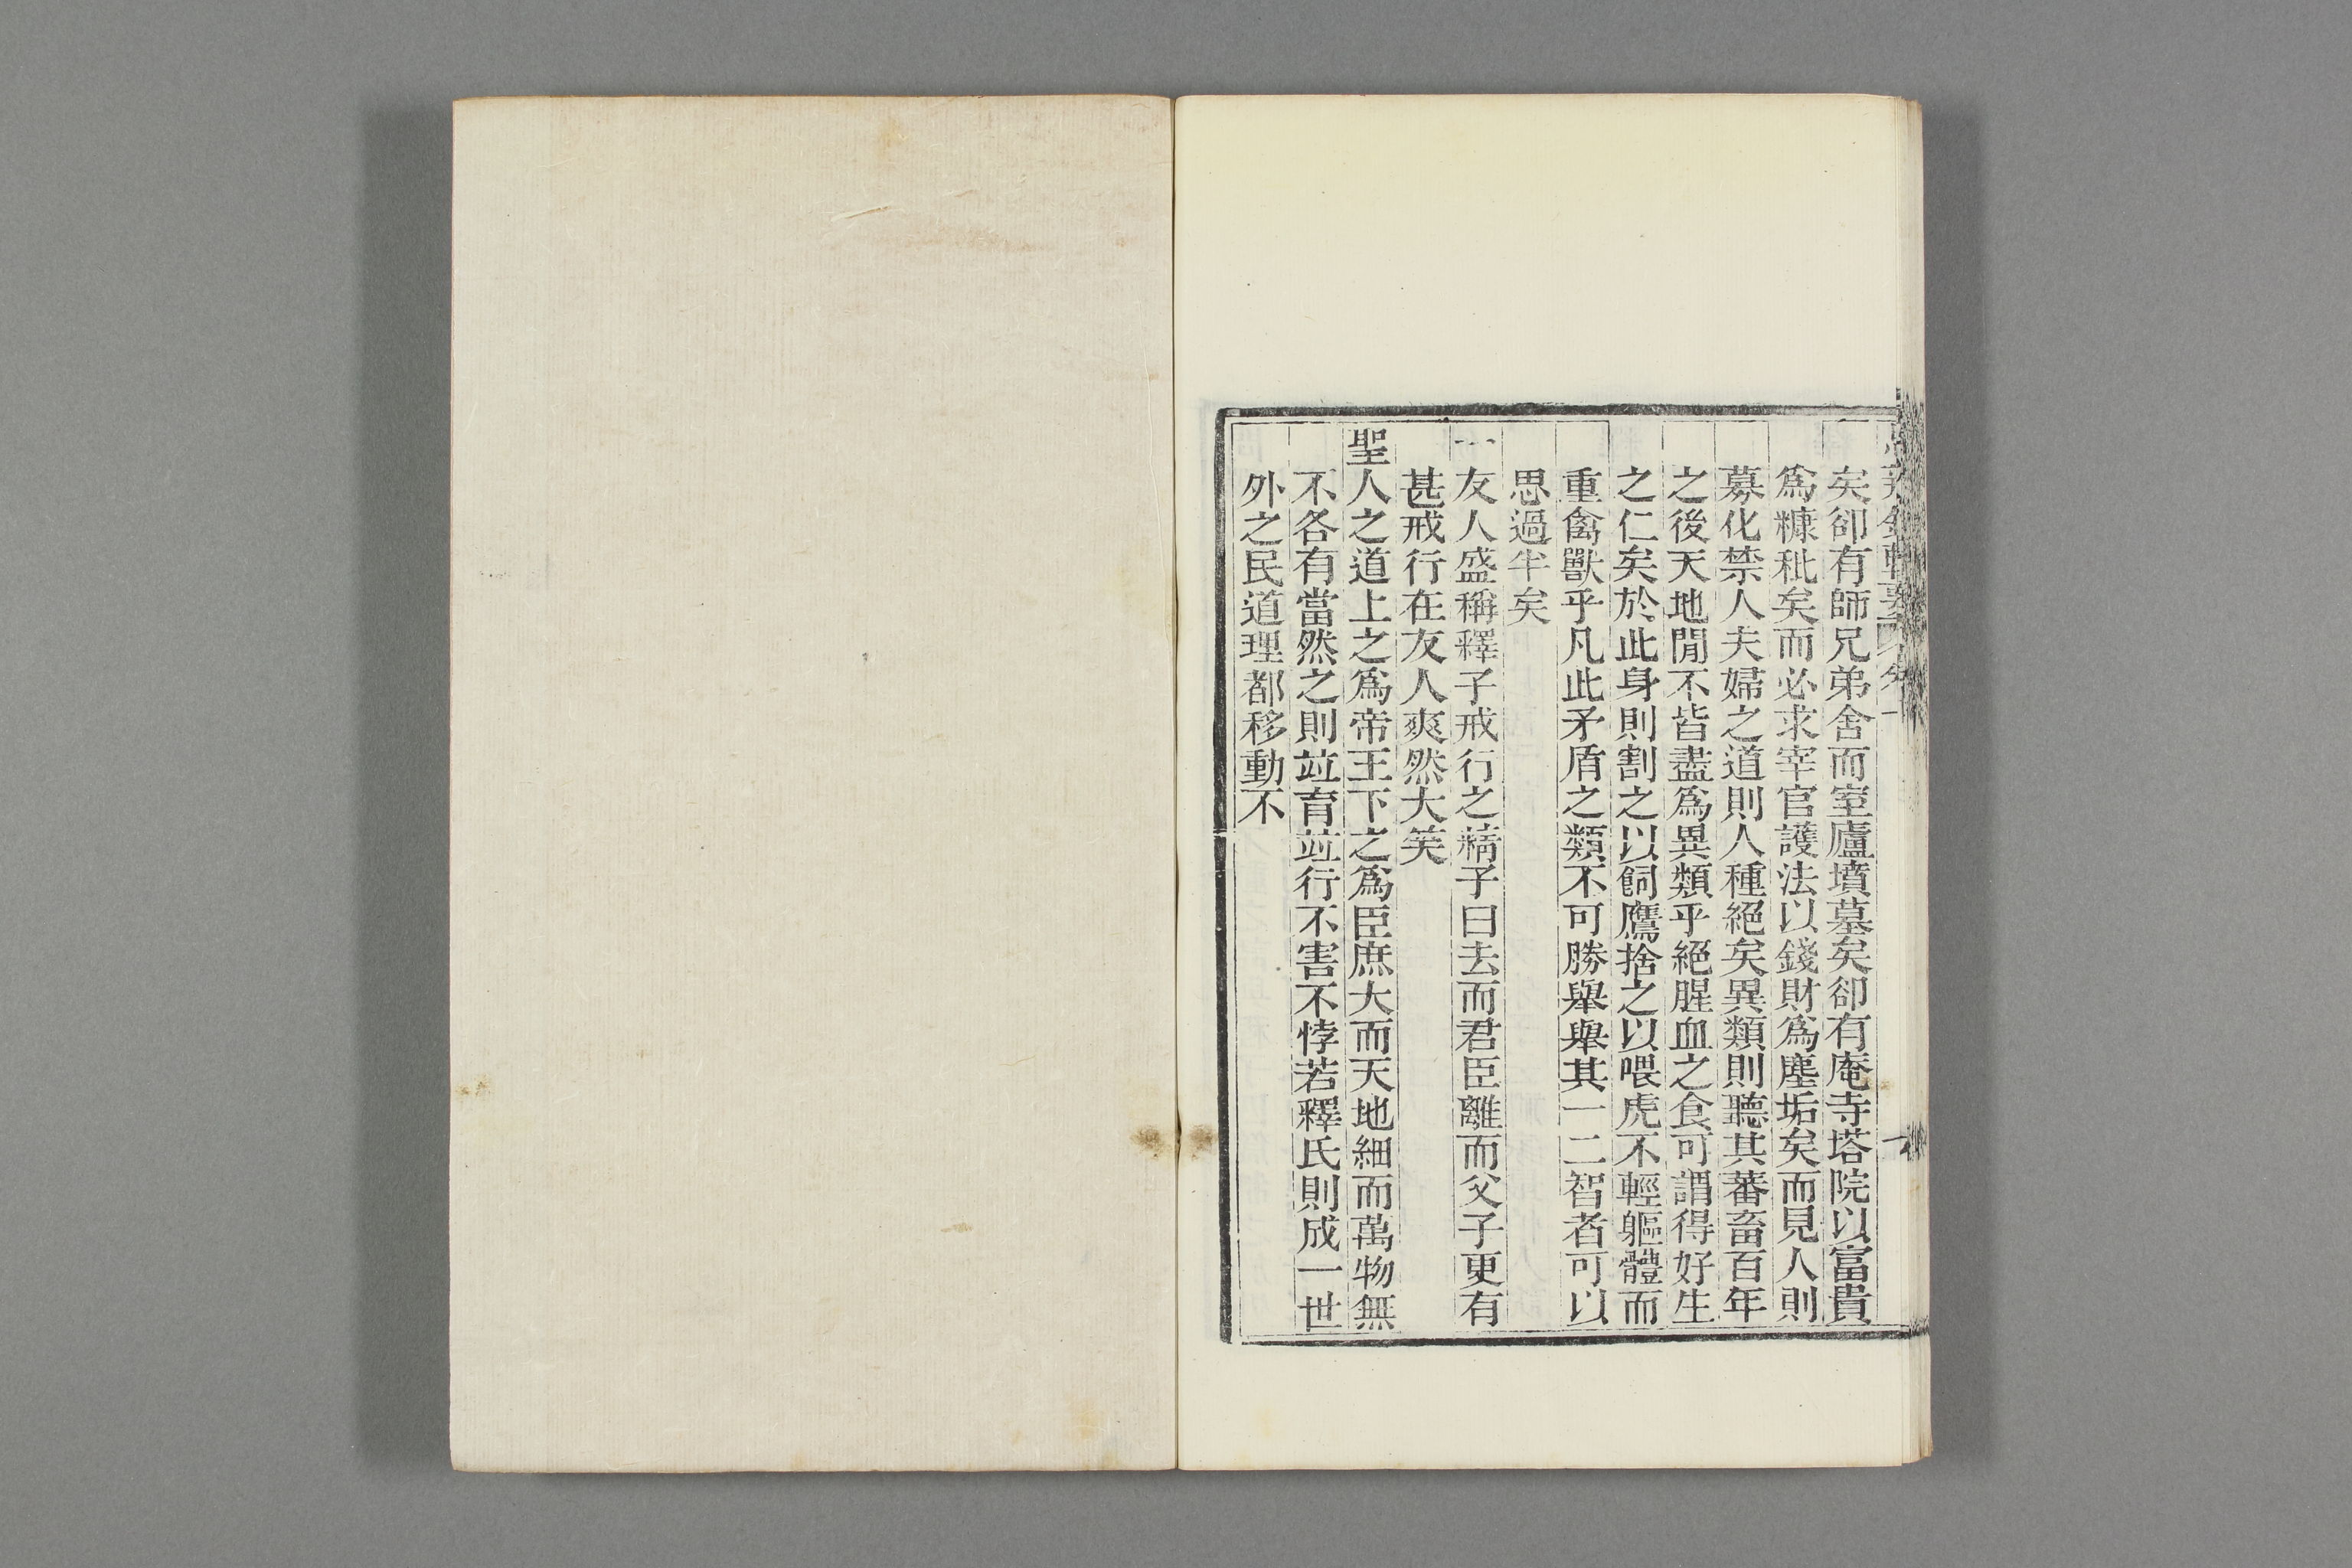 矣卻有師兄弟舍而室廬墳墓矣卻有庵寺塔院以富貴
爲糠秕矣而必求宰官護法以錢財爲塵垢矣而見人則
募化禁人夫婦之道則人種絕矣異類則聽其蕃畜百年
之後天地閒不皆盡爲異類乎絕腥血之食可謂得好生
之仁矣於此身則割之以飼鷹捨之以喂虎不輕軀體而
重禽獸乎凡此矛盾之類不可勝舉舉其一二智者可以
思過半矣
一友人盛稱釋子戒行之精子曰去而君臣離而父子更有
甚戒行在友人爽然大笑
聖人之道上之爲帝王下之爲臣庶大而天地細而萬物無
不各有當然之則竝育竝行不害不悖若釋氏則成一世
外之民道理都移動不